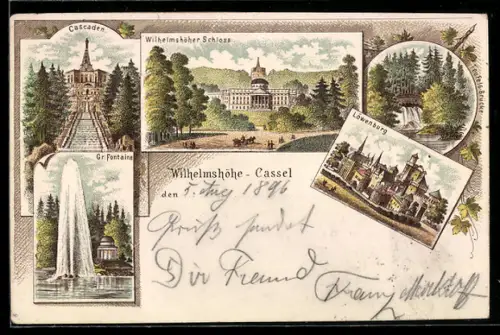 Cascaden.
Wilhelmshöher Schloss
Teufels-Brücke
Löwenburg
Gr. Fontaine
Wilhelmshöhe - Cassel
den 5. Aug 1896
Gruß sendet
Dir Freund
Franz